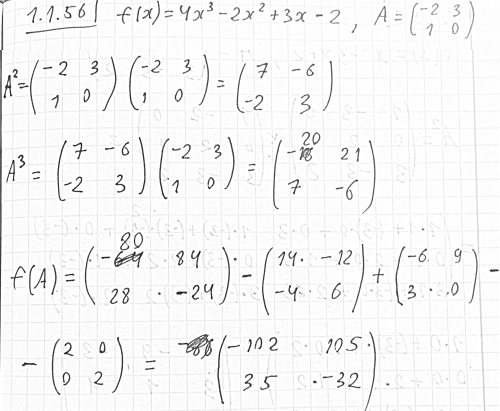 1.1.56 f(x) = 4x³ - 2x² + 3x - 2, A = (-2 3; 1 0)
A² = (-2 3; 1 0) (-2 3; 1 0) = (7 -6; -2 3)
A³ = (7 -6; -2 3) (-2 3; 1 0) = (-20 21; 7 -6)
f(A) = (-80 84; 28 -24) - (14 -12; -4 6) + (-6 9; 3 0) -
- (2 0; 0 2) = (-102 105; 35 -32).